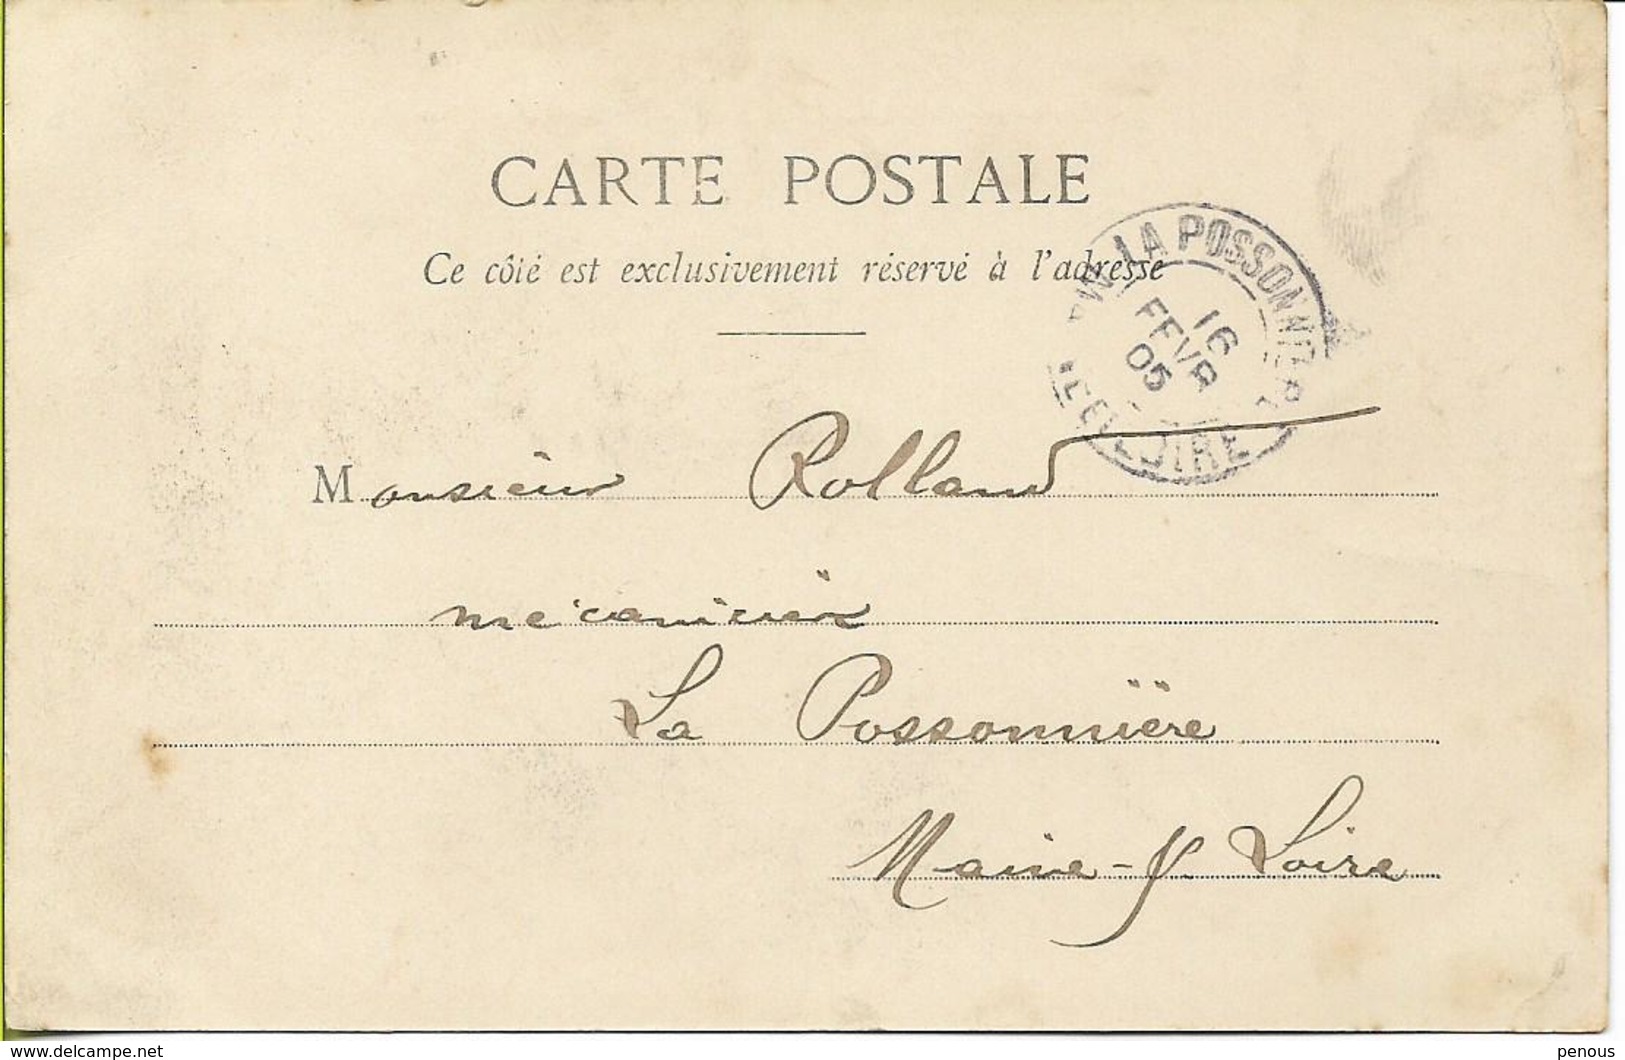 CARTE POSTALE
Ce côté est exclusivement réservé à l'adresse
LA POSSONNIÈRE
16
FEVR
05
ET LOIRE
Monsieur Rolland
mécanicien
La Possonnière
Maine-&. Loire
www.delcampe.net
penous